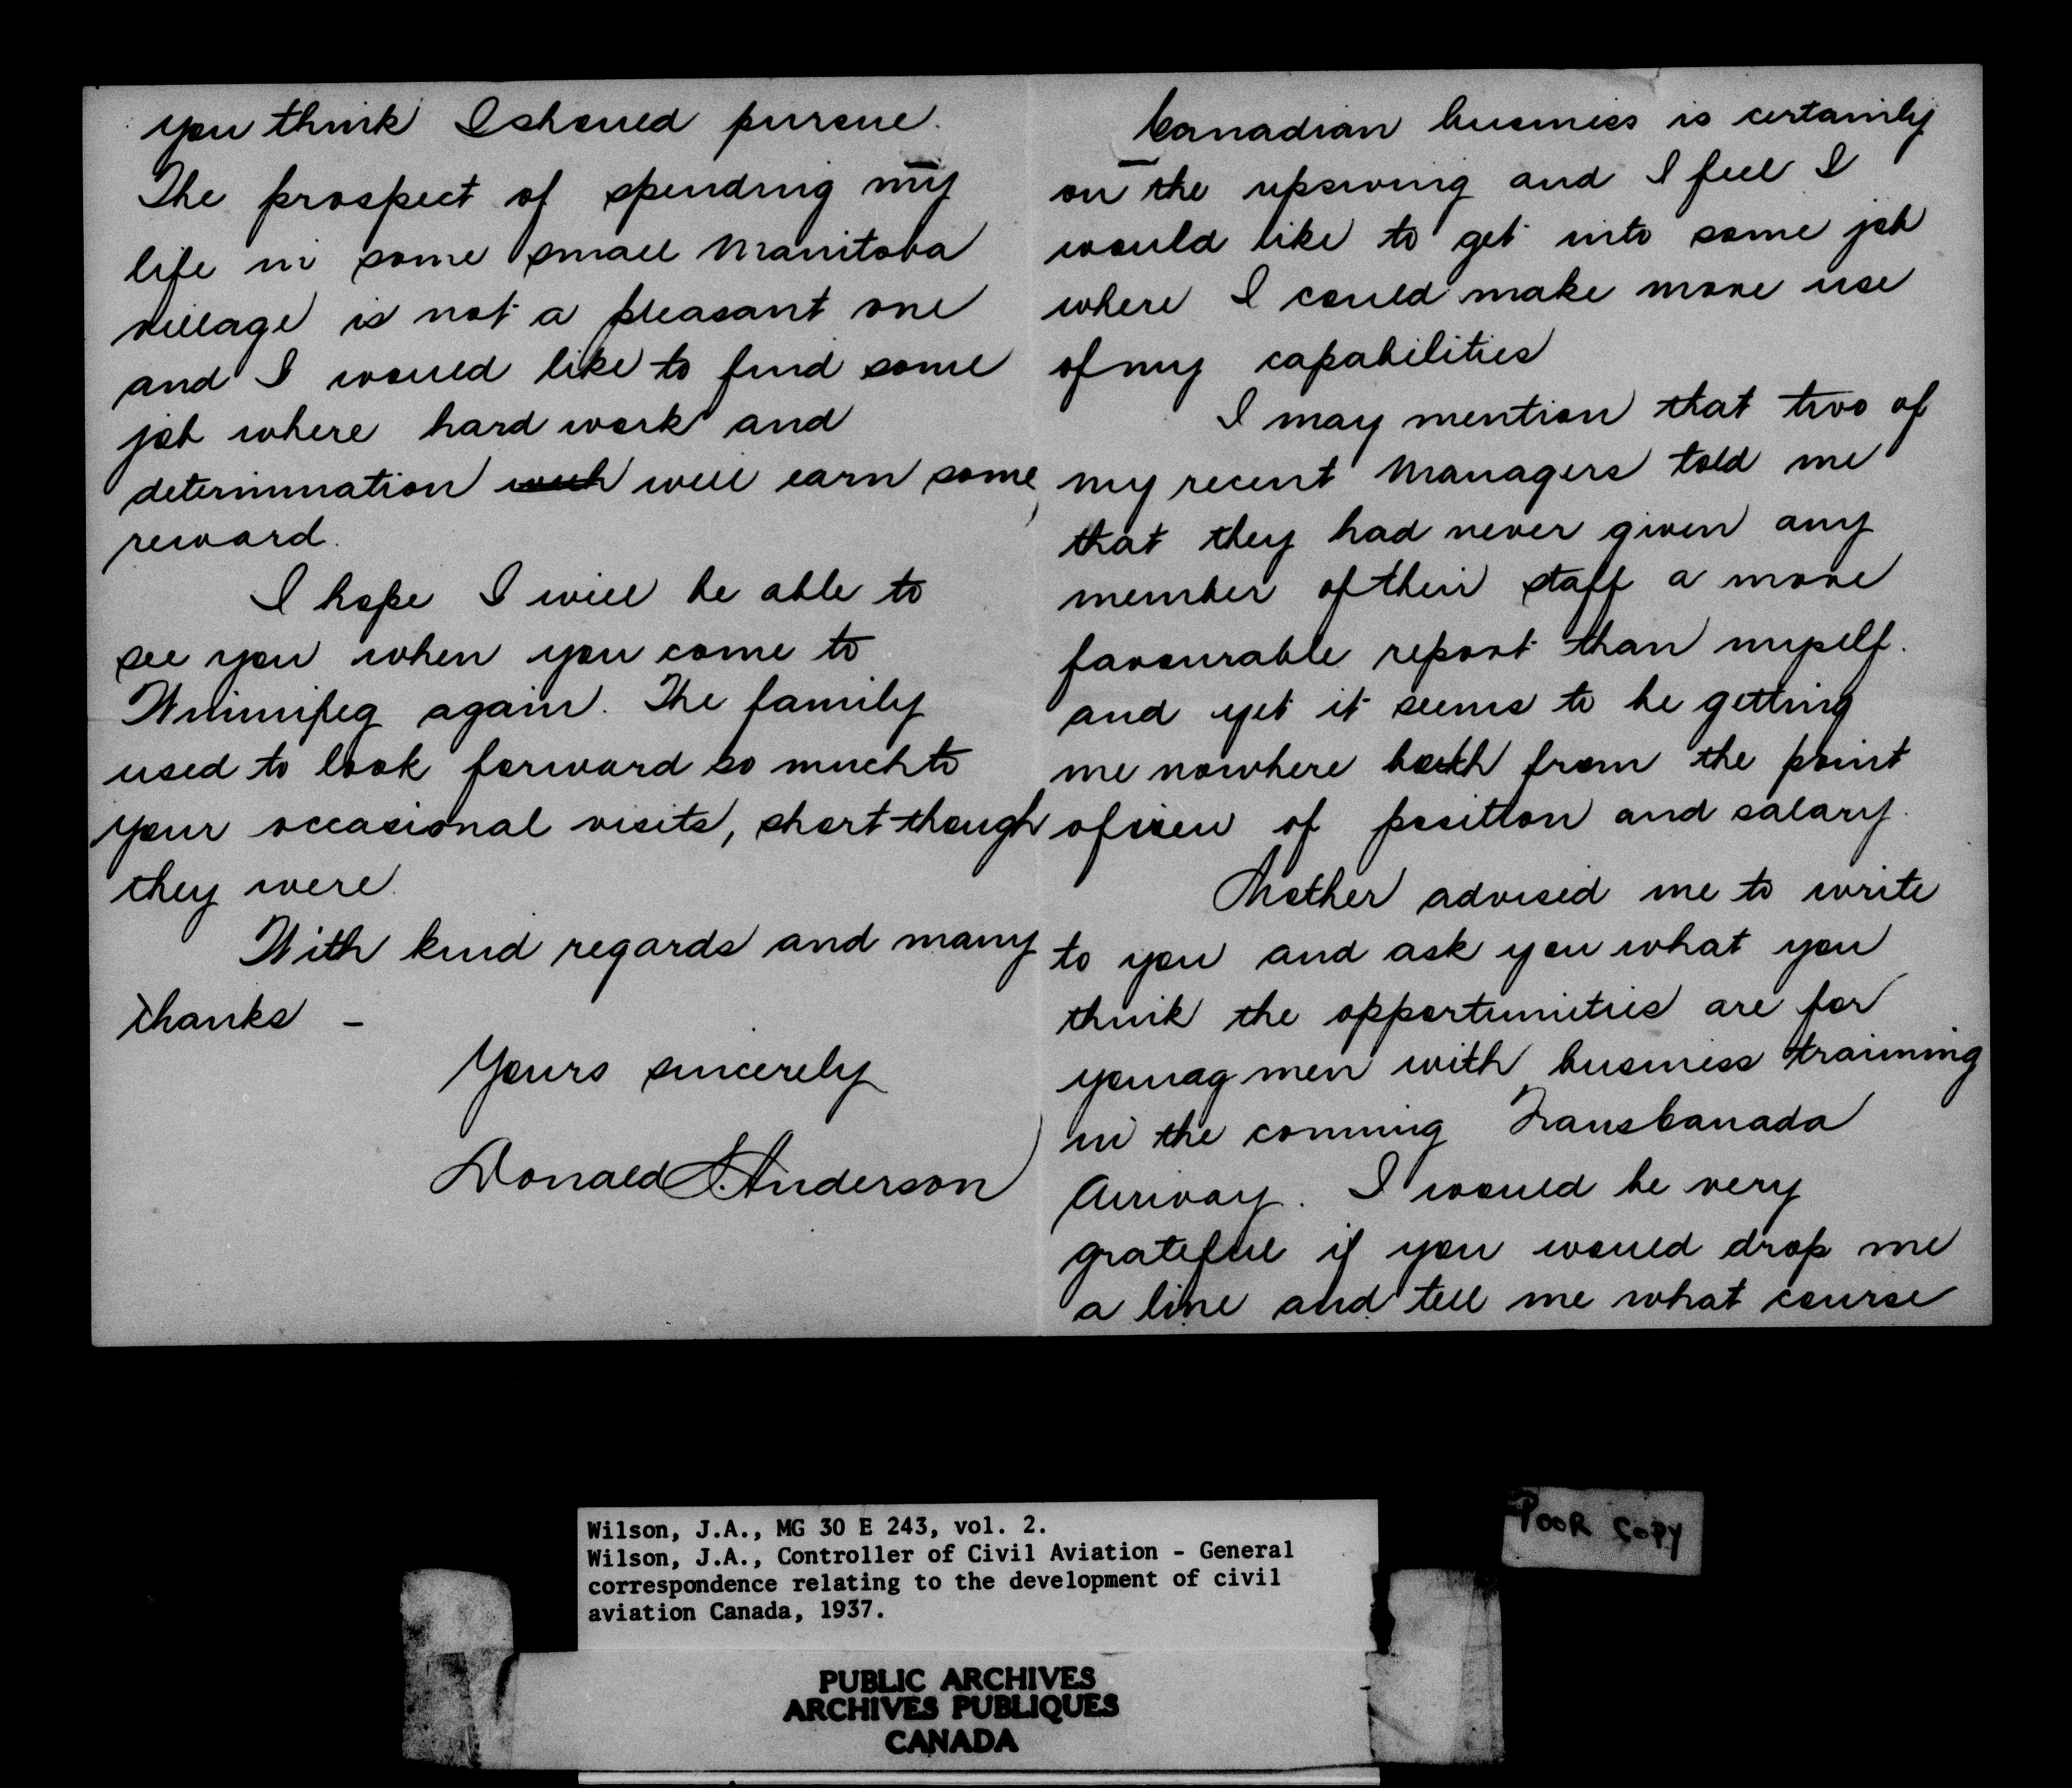 Canadian business is certainly
on the upswing and I feel I
would like to get into some job
where I could make more use
of my capabilities
I may mention that two of
my recent Managers told me
that they had never given any
member of their staff a more
favourable report than myself.
and yet it seems to be getting
me nowhere both from the point
of view of position and salary.
Mother advised me to write
to you and ask you what you
think the opportunities are for
young men with business training
in the coming TransCanada
Airway. I would be very
grateful if you would drop me
a line and tell me what course
you think I should pursue.
The prospect of spending my
life in some small Manitoba
village is not a pleasant one
and I would like to find some
job where hard work and
determination will earn some
reward.
I hope I will be able to
see you when you come to
Winnipeg again. The family
used to look forward so much to
your occasional visits, short though
they were.
With kind regards and many
thanks –
Yours sincerely
Donald S. Anderson
Wilson, J.A., MG 30 E 243, vol. 2.
Wilson, J.A., Controller of Civil Aviation - General
correspondence relating to the development of civil
aviation Canada, 1937.
POOR COPY
PUBLIC ARCHIVES
ARCHIVES PUBLIQUES
CANADA